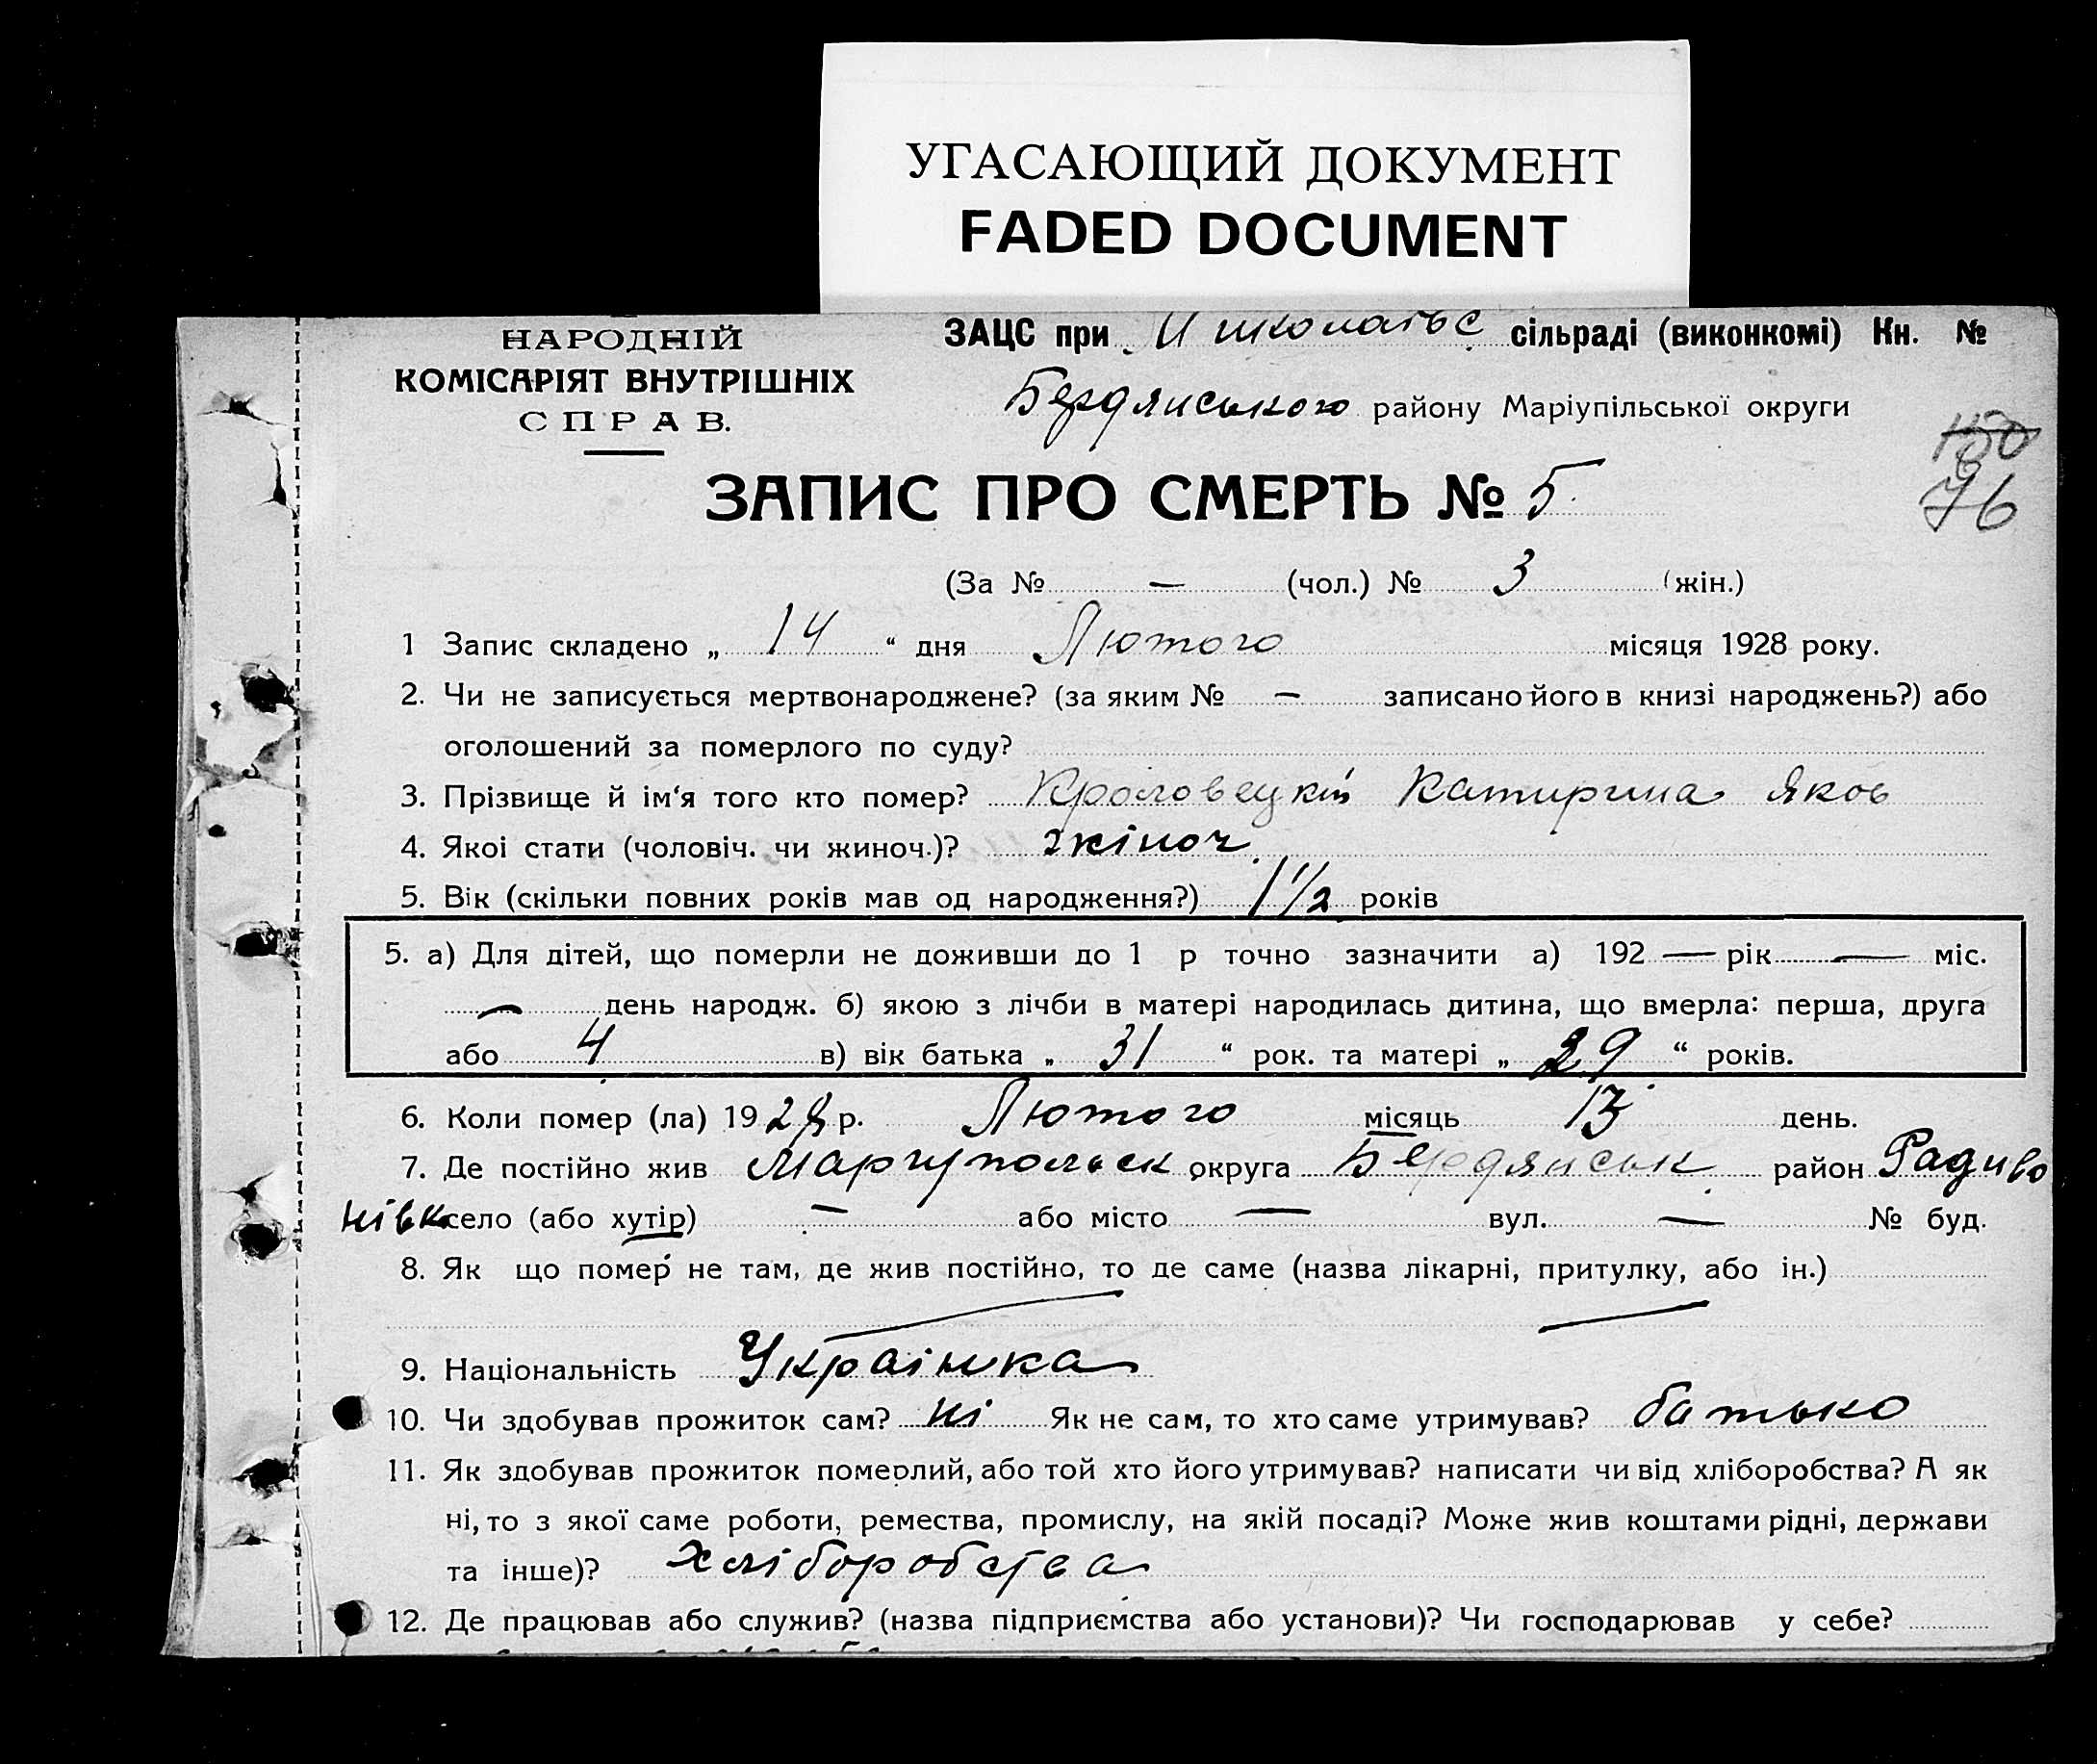 УГАСАЮЩИЙ ДОКУМЕНТ
FADED DOCUMENT
НАРОДНІЙ
КОМІСАРІЯТ ВНУТРІШНІХ
СПРАВ.
ЗАЦС при сільраді (виконкомі) Кн. №
Бердянського району Маріупільської округи
150
76
ЗАПИС ПРО СМЕРТЬ № 5
(За № — (чол.) № 3 (жін.)
1 Запис складено „ 14 “ дня Лютого місяця 1928 року.
2. Чи не записується мертвонароджене? (за яким № — записано його в книзі народжень?) або
оголошений за померлого по суду?
3. Прізвище й ім‘я того кто помер? Кроловецкій Катирина Яков
4. Якоі стати (чоловіч. чи жиноч.)? жіноч.
5. Вік (скільки повних років мав од народження?) 1 1/2 років
5. а) Для дітей, що померли не доживши до 1 р точно зазначити а) 192 — рік — міс.
— день народж. б) якою з лічби в матері народилась дитина, що вмерла: перша, друга
або 4 в) вік батька „ 31 “ рок. та матері „ 29 “ років.
6. Коли помер (ла) 1928 р. Лютого місяць 13 день.
7. Де постійно жив Маріупольск округа Бердянськ район Радиво
нівк село (або хутір) — або місто — вул. — № буд.
8. Як що помер не там, де жив постійно, то де саме (назва лікарні, притулку, або ін.)
— —
9. Національність Украінка
10. Чи здобував прожиток сам? ні Як не сам, то хто саме утримував? батько
11. Як здобував прожиток померлий, або той хто його утримував? написати чи від хліборобства? А як
ні, то з якої саме роботи, ремества, промислу, на якій посаді? Може жив коштами рідні, держави
та інше)? хліборобства
12. Де працював або служив? (назва підприємства або установи)? Чи господарював у себе?